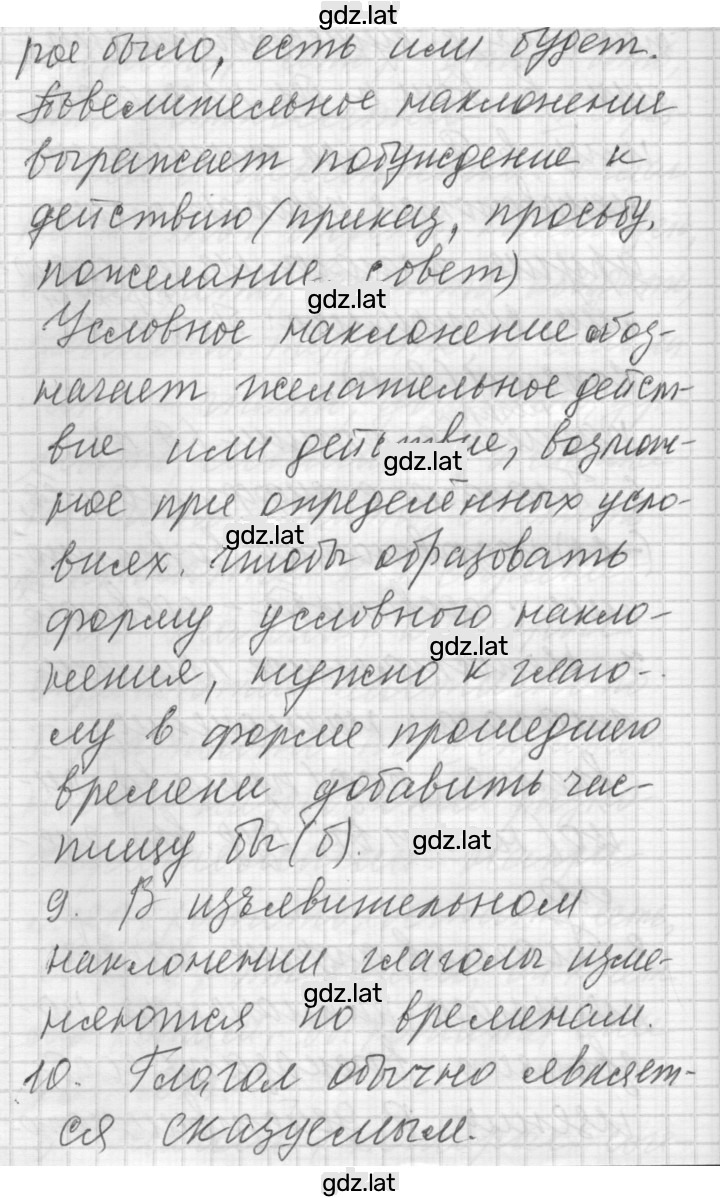 gdz.lat
рое было, есть или будет.
Повелительное наклонение
выражает побуждение к
действию (приказ, просьбу,
пожелание совет)
gdz.lat
Условное наклонение обоз-
начает желательное дейст-
вие или действие, возмож-
gdz.lat
ное при определённых усло-
gdz.lat
виях. Чтобы образовать
форму условного накло-
gdz.lat
нения, нужно к глаго-
лу в форме прошедшего
времени добавить час-
тицу бы (б).
gdz.lat
9. В изъявительном
наклонении глаголы изме-
gdz.lat
няются по временам.
10. Глагол обычно являет-
ся сказуемым.
gdz.lat